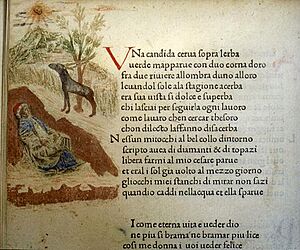 VNa candida cerua sopra lerba
Verde mapparue con duo corna doro
fra due riuiere allombra duno alloro
leuandol sole ala stagione acerba
era sua uista si dolce e superba
chi lasciai per seguirla ogni lauoro
come lauaro chen cercar thesoro
chon dilecto laffanno disacerba
Nessun mitocchi al bel collo dintorno
scripto auea di diamanti & di topazi
libera farmi al mio cesare parue
et eral sol gia uolto al mezzo giorno
gliocchi miei stanchi di mirar non sazi
quandio caddi nellacqua et ella sparue
I come eterna uita e ueder dio
ne piu si brama ne bramar piu lice
cosi me donna i uoi ueder felice